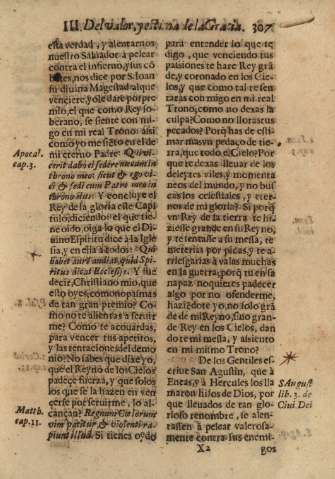 III. Del valor, y estima de la Gracia. 307
esta verdad, y alentarnos
nuestro Saluador à pelear
contra el infierno, y sus có
bates, nos dice por S. Ioan
su diuina Magestad al que
venciere, yo le daré por pre
mio, el que como Rey so-
berano, se siente con mi-
go en mi real Trono: assi
como yo me siéto en el de
mi eterno Padre: Qui vi-
cerit dabo ei sedere mecum in
throno meo: sicut & ego vi-
ci & sedi cum Patre meo in
throno eius. Y concluye el
Rey de la gloria este Capi
tulo, diciendo: el que tie-
ne oido, oiga lo que el Di
uino Espiritu dice a la Igle
sia, y en ella à todos: Qui
habet aurê audiat, quid Spi-
ritus dicat Ecclesijs. Y sue
decir, Christiano mio, que
esto oyes, como no pasmas
de tan gran premio? Co-
mo no te alientas a seruir
me? Como te acouardas,
para vencer tus apetitos,
y las tentaciones del demo
nio? No sabes que dixe yo,
que el Reyno de los Cielos
padece fuerça, y que solos
los que se la hazen en ven
cerse por seruirme, lo al-
cançan? Regnum Cælorum
vim patitur & violenti ra-
piunt illud. Si tienes oydo
Apocal.
cap. 3.
Matth.
cap. 11.
para entender lo que te
digo, que venciendo tus
passiones te hare Rey grá
de, y coronado en los Cie-
los, y que como tal te sen
taras con migo en mi real
Trono, como no dexas la
culpa? Como no lloras tus
pecados? Porq̃ has de esti-
mar mas vn pedaço de tie-
rra, que todo el Cielo? Por
que te dexas lleuar de los
deleytes viles y momenta
neos del mundo, y no bus
cas los celestiales, y eter-
nos de mi gloria? Si por q̃
vn Rey de la tierra te hi-
ziesse grande en su Reyno,
y te sentasse a su mesa, te
meterias por picas, y te a-
rriesgarias à valas muchas
en la guerra; porq̃ tu en sã
na paz no quieres padecer
algo por no ofenderme,
haziẽdote yo, no solo grã
de de mi Reyno, sino gran-
de Rey en los Cielos, dan
do te mi mesa, y assiento
en mi mismo Trono?
De los Gentiles es-
criue San Agustin, que à
Eneas, y à Hercules los lla
maron hijos de Dios, por
que lleuados de tan glo-
rioso renombre, se alen-
tassen à pelear valerosa-
mente contra sus enemi-
S August
lib. 3. de
Ciui Dei
X2 gos